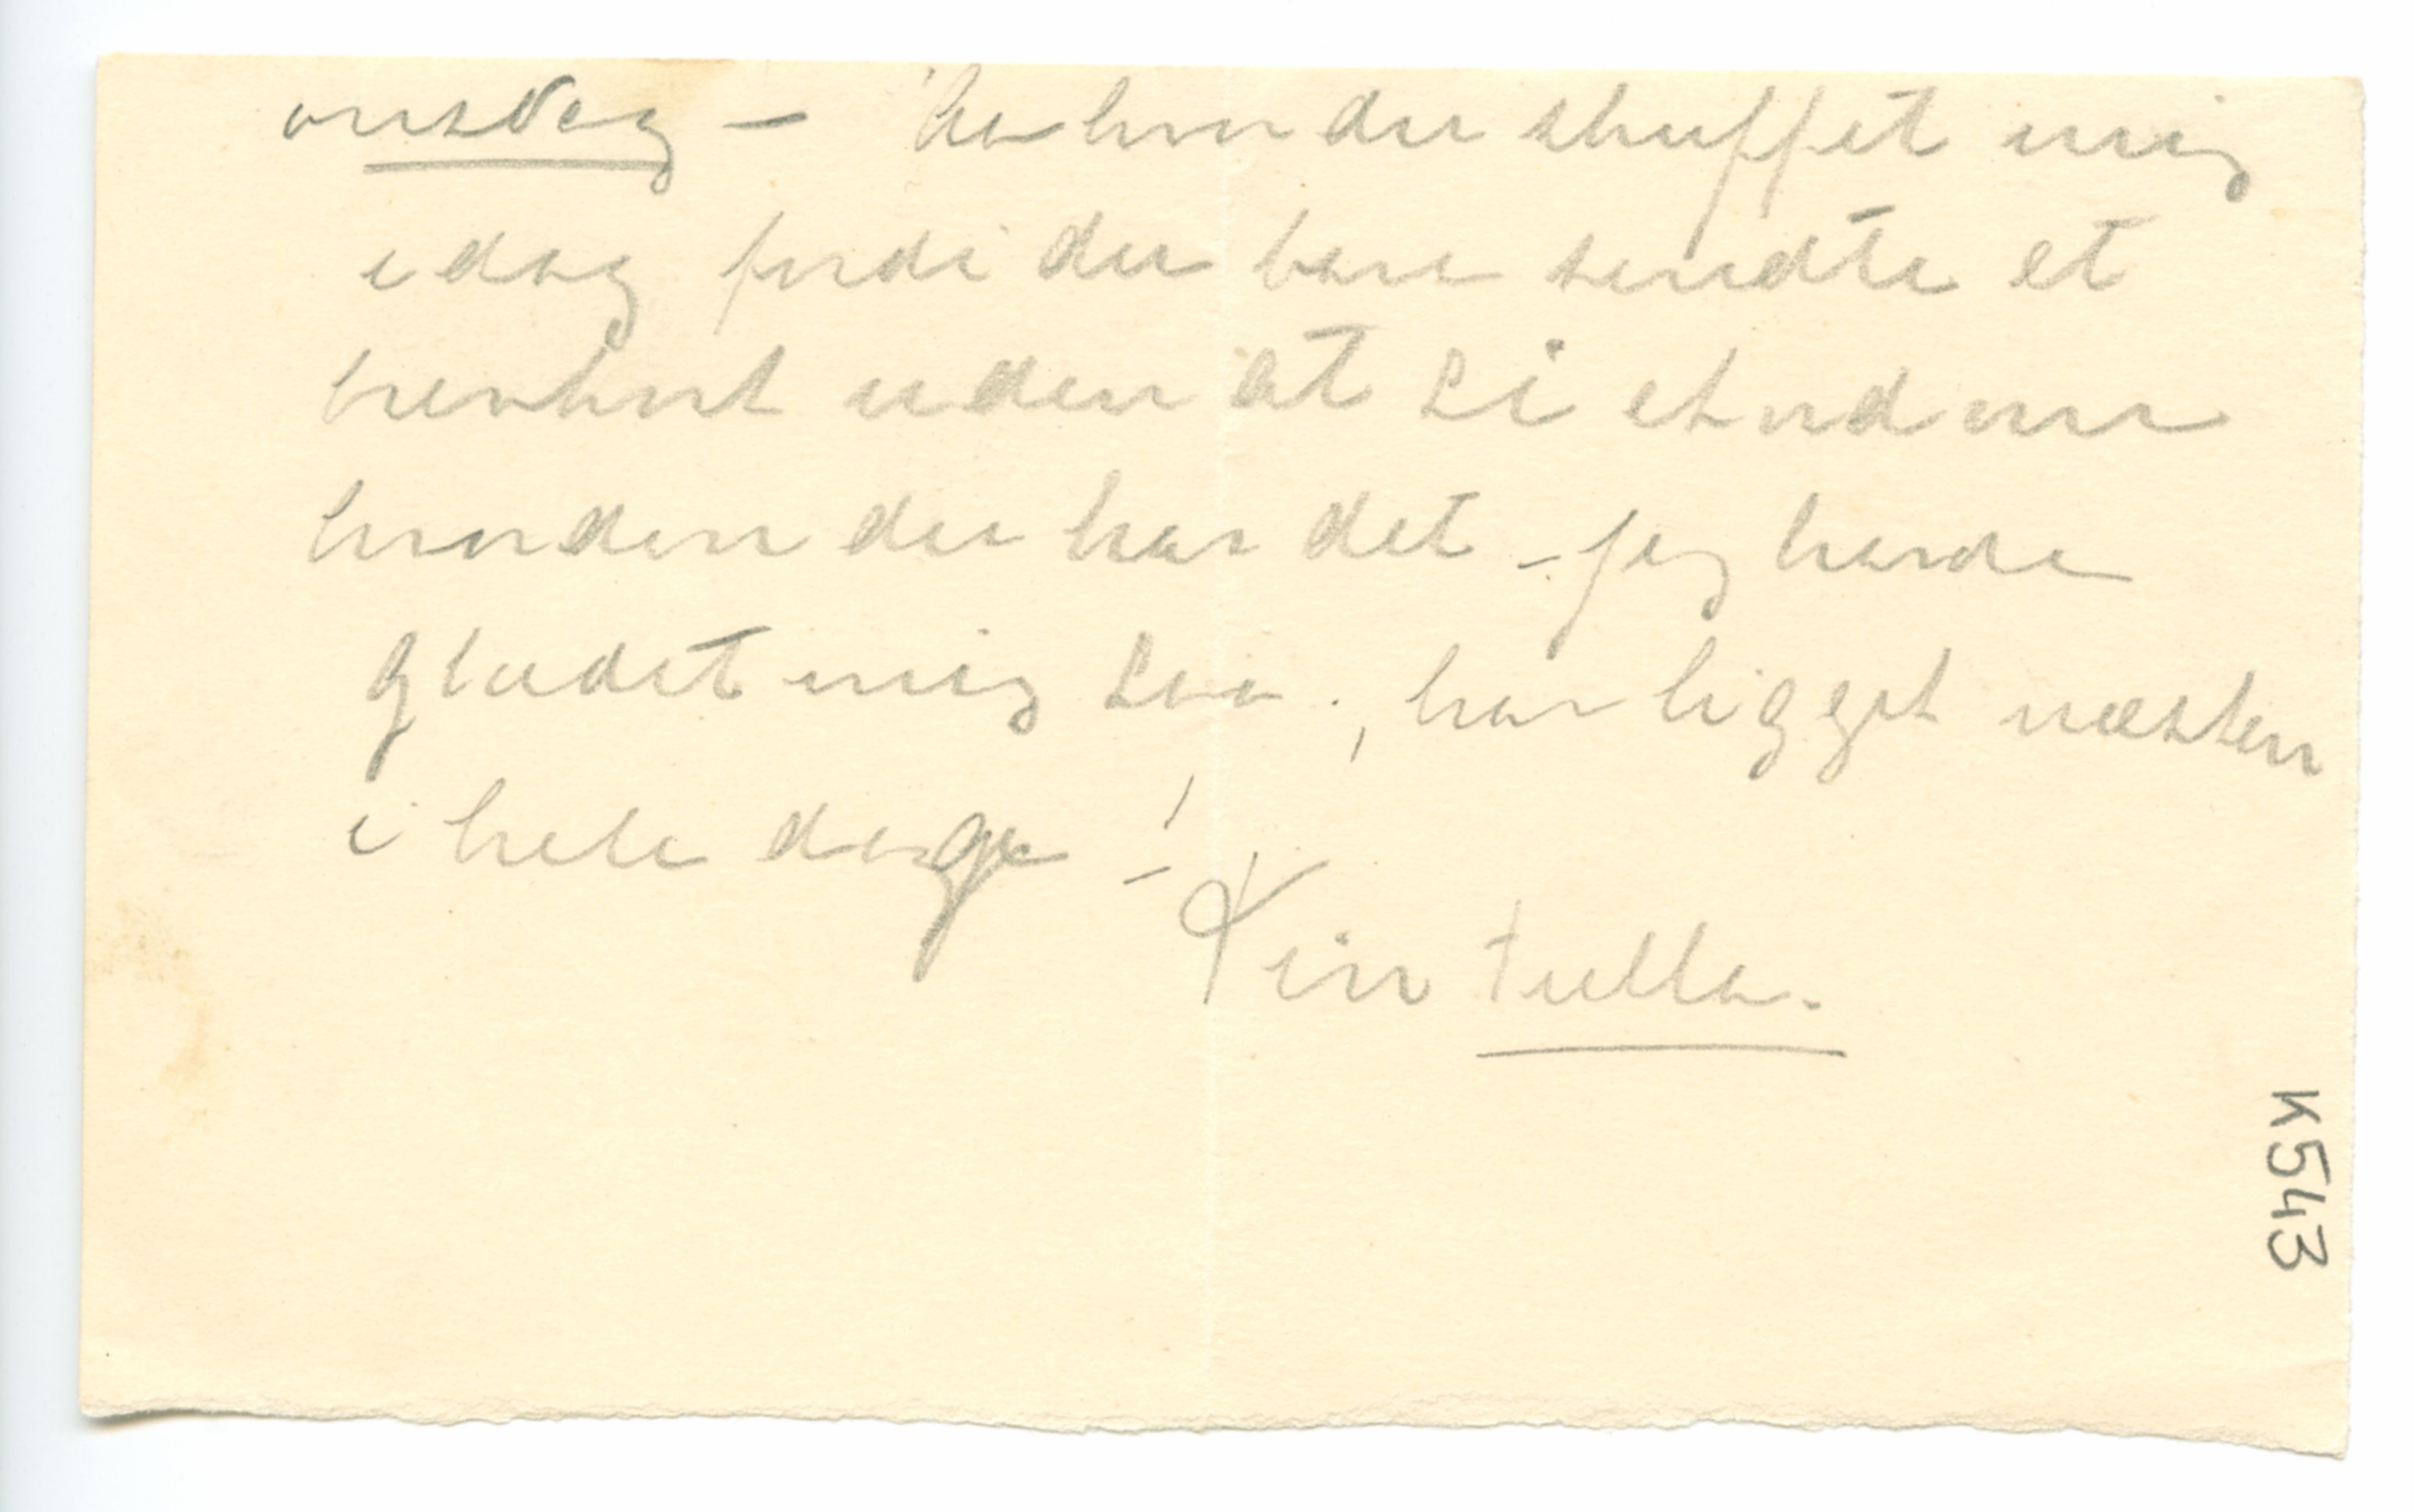 onsdag – Aa hvor du skuffet mig
idag fordi du bare sendte et
brevkort uden at si et ord om
hvordan du har det – jeg havde
glædet mig saa., har ligget næsten
i hele dage! –
Din Tulla.
K543